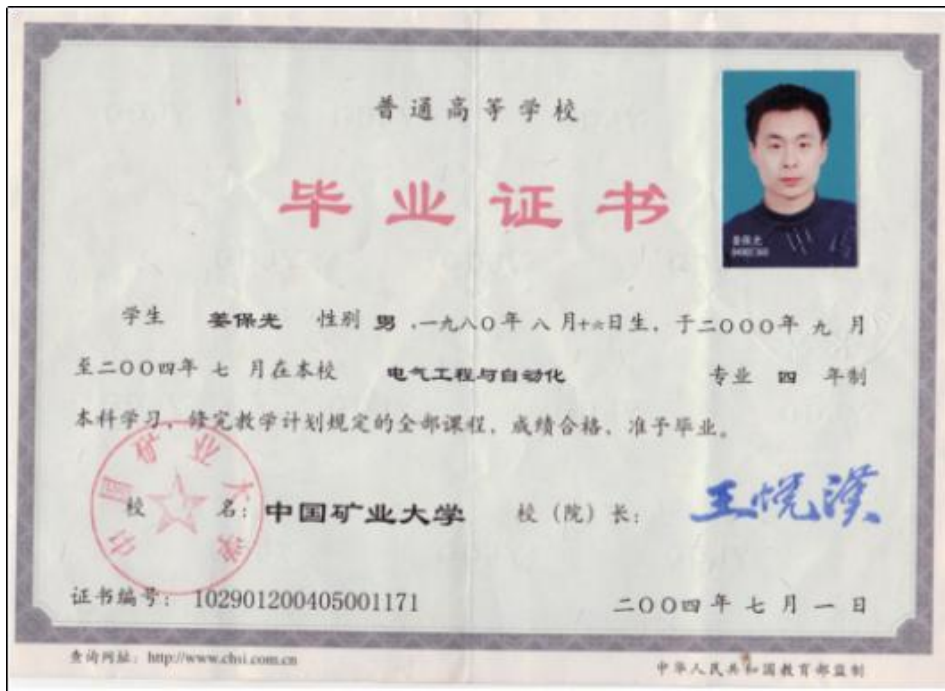 普通高等学校
毕业证书
姜保光
学生 姜保光 性别 男 ,一九八〇年 八 月十六日生, 于二〇〇〇年 九 月
至二〇〇四年 七 月在本校 电气工程与自动化 专业 四 年制
本科学习, 修完教学计划规定的全部课程, 成绩合格, 准予毕业。
中国矿业大学
校 名: 中国矿业大学 校(院)长: 王悦汉
证书编号: 102901200405001171 二〇〇四年七月一日
查询网址: http://www.chsi.com.cn 中华人民共和国教育部监制